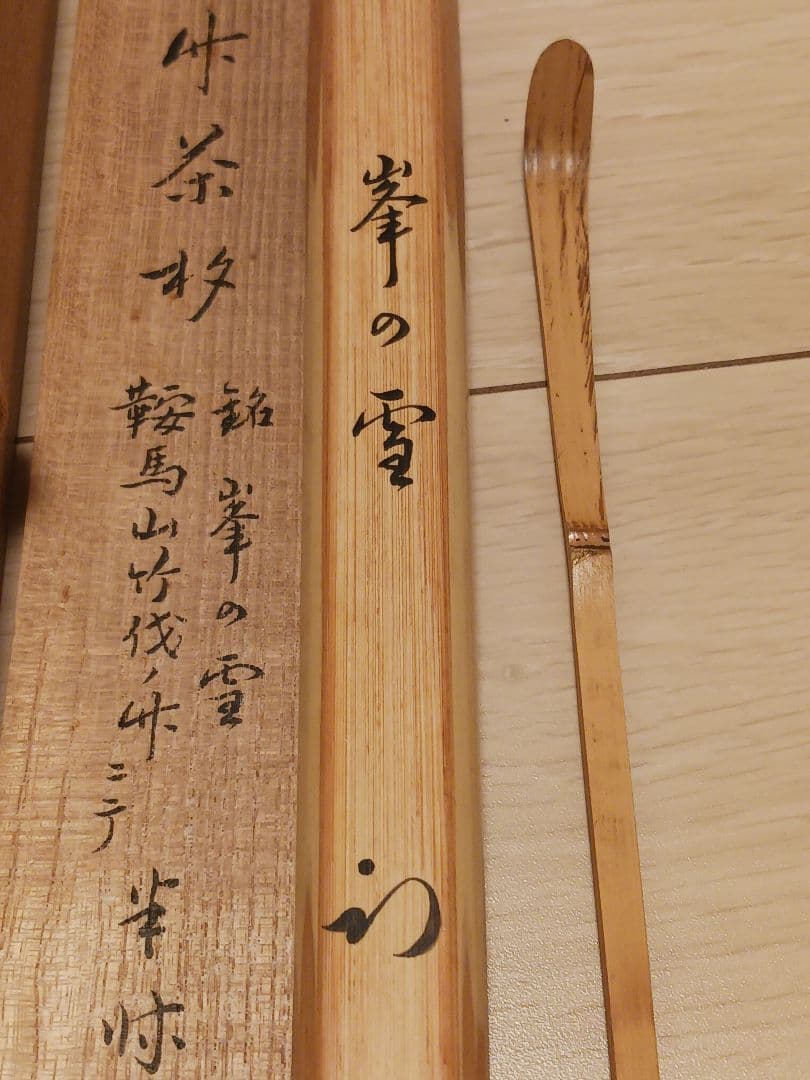 峯の雪
竹茶杓
銘 峯の雪
鞍馬山竹伐ノ竹ニテ
半